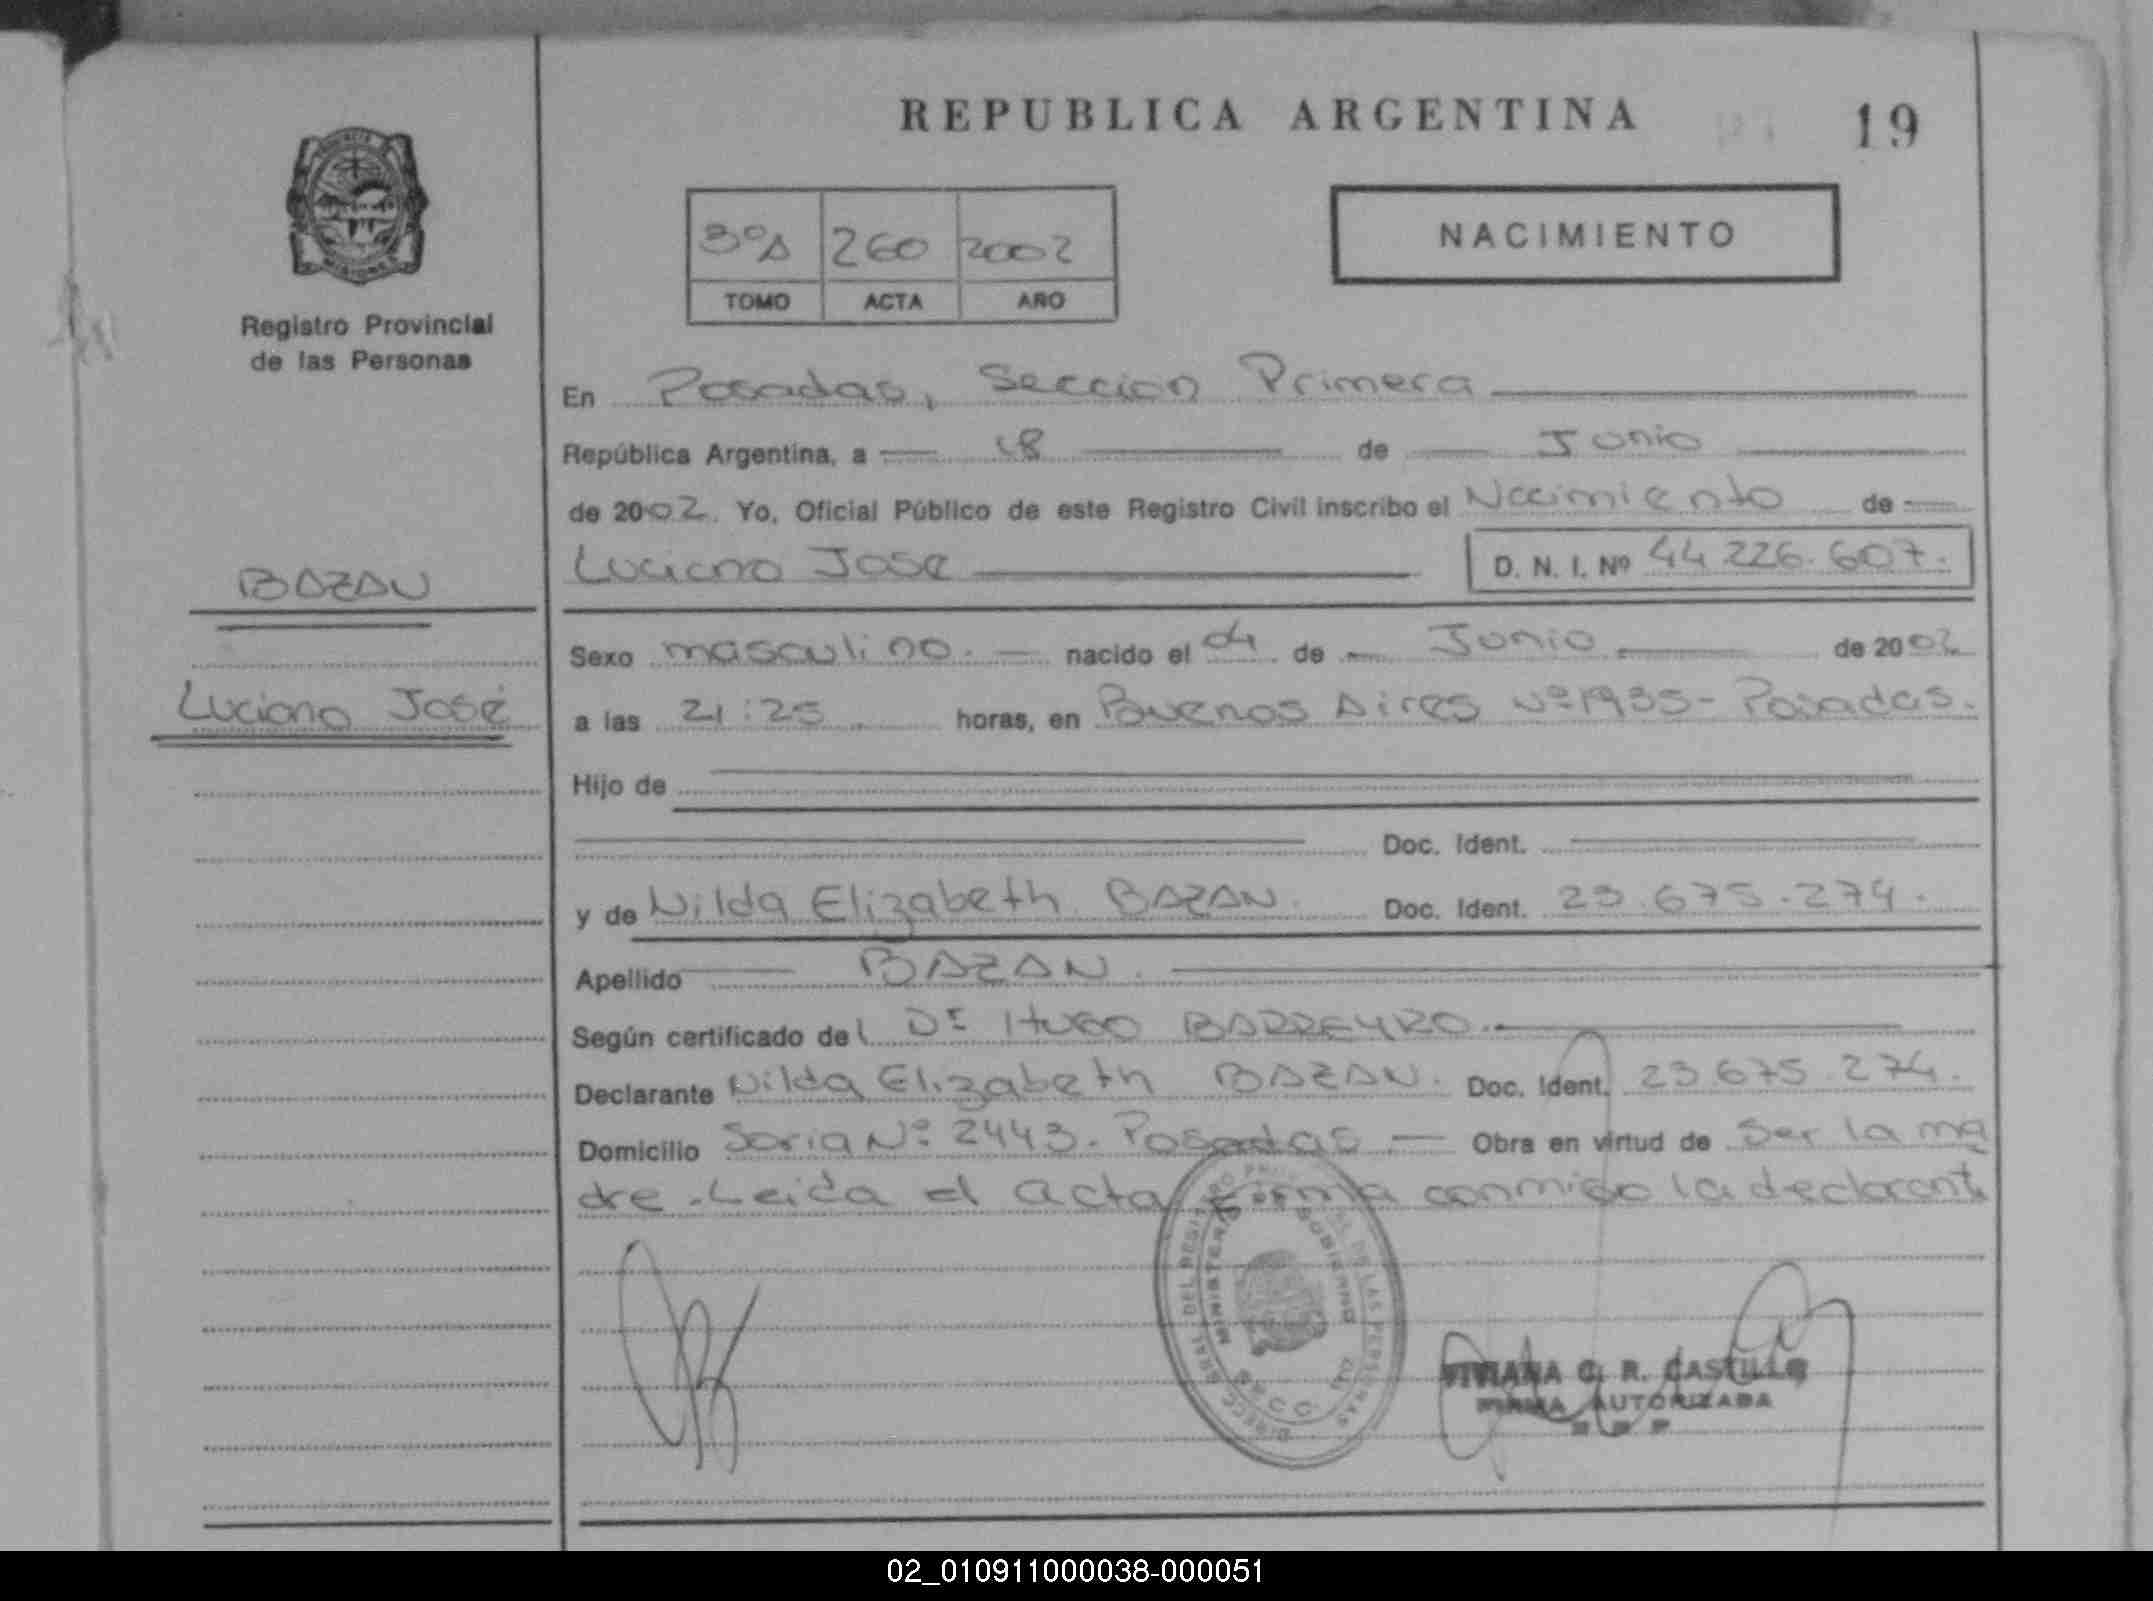 REPUBLICA ARGENTINA
19
3ºA 260 2002
TOMO ACTA AÑO
NACIMIENTO
Registro Provincial
de las Personas
En Posadas, Seccion Primera
República Argentina, a 18 de Junio
de 2002. Yo, Oficial Público de este Registro Civil inscribo el Nacimiento de
Luciano José D. N. I. Nº 44.226.607.
BAZAN
Sexo masculino. nacido el 04 de Junio de 2002
Luciano José
a las 21:25 horas, en Buenos Aires Nº 1935- Posadas.
Hijo de
Doc. Ident.
y de Nilda Elizabeth BAZAN. Doc. Ident. 23.675.274.
Apellido BAZAN.
Según certificado del Dr HUGO BARREYRO.
Declarante Nilda Elizabeth BAZAN. Doc. Ident. 23.675.274.
Domicilio Soria Nº 2443. Posadas Obra en virtud de Ser la ma
dre. Leida el acta firma conmigo la declarante
DIRECC. GRAL. DEL REGISTRO PROVINCIAL DE LAS PERSONAS
MINISTERIO GOBIERNO
VIVIANA C. R. CASTILLO
FIRMA AUTORIZADA
R P P
02_010911000038-000051